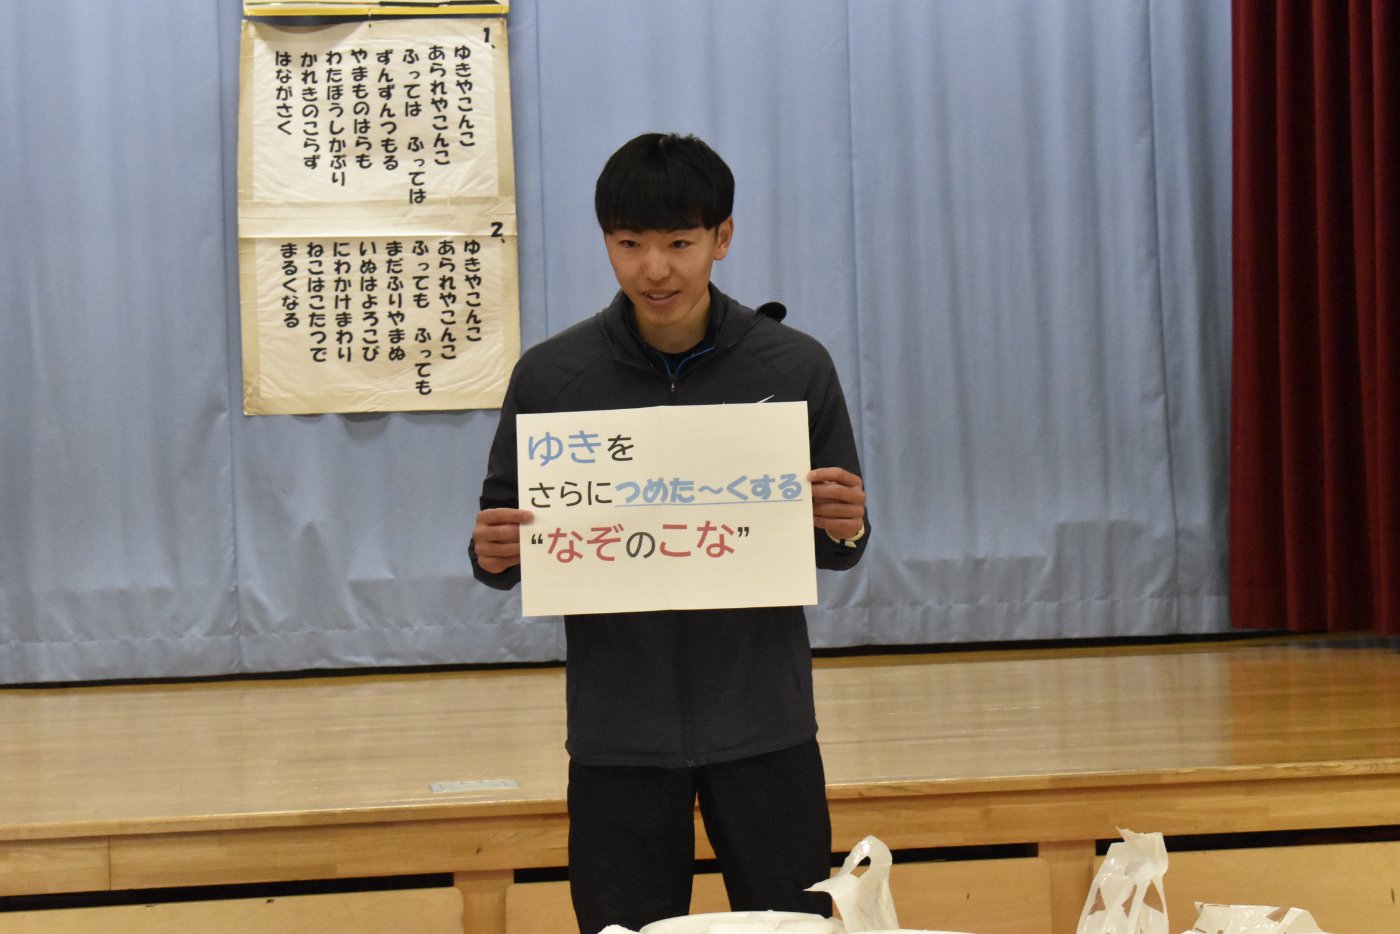 1、
ゆきやこんこ
あられやこんこ
ふっては ふっては
ずんずんつもる
やまものはらも
わたぼうしかぶり
かれきのこらず
はながさく
2、
ゆきやこんこ
あられやこんこ
ふっても ふっても
まだふりやまぬ
いぬはよろこび
にわかけまわり
ねこはこたつで
まるくなる
ゆきを
さらにつめた〜くする
“なぞのこな”